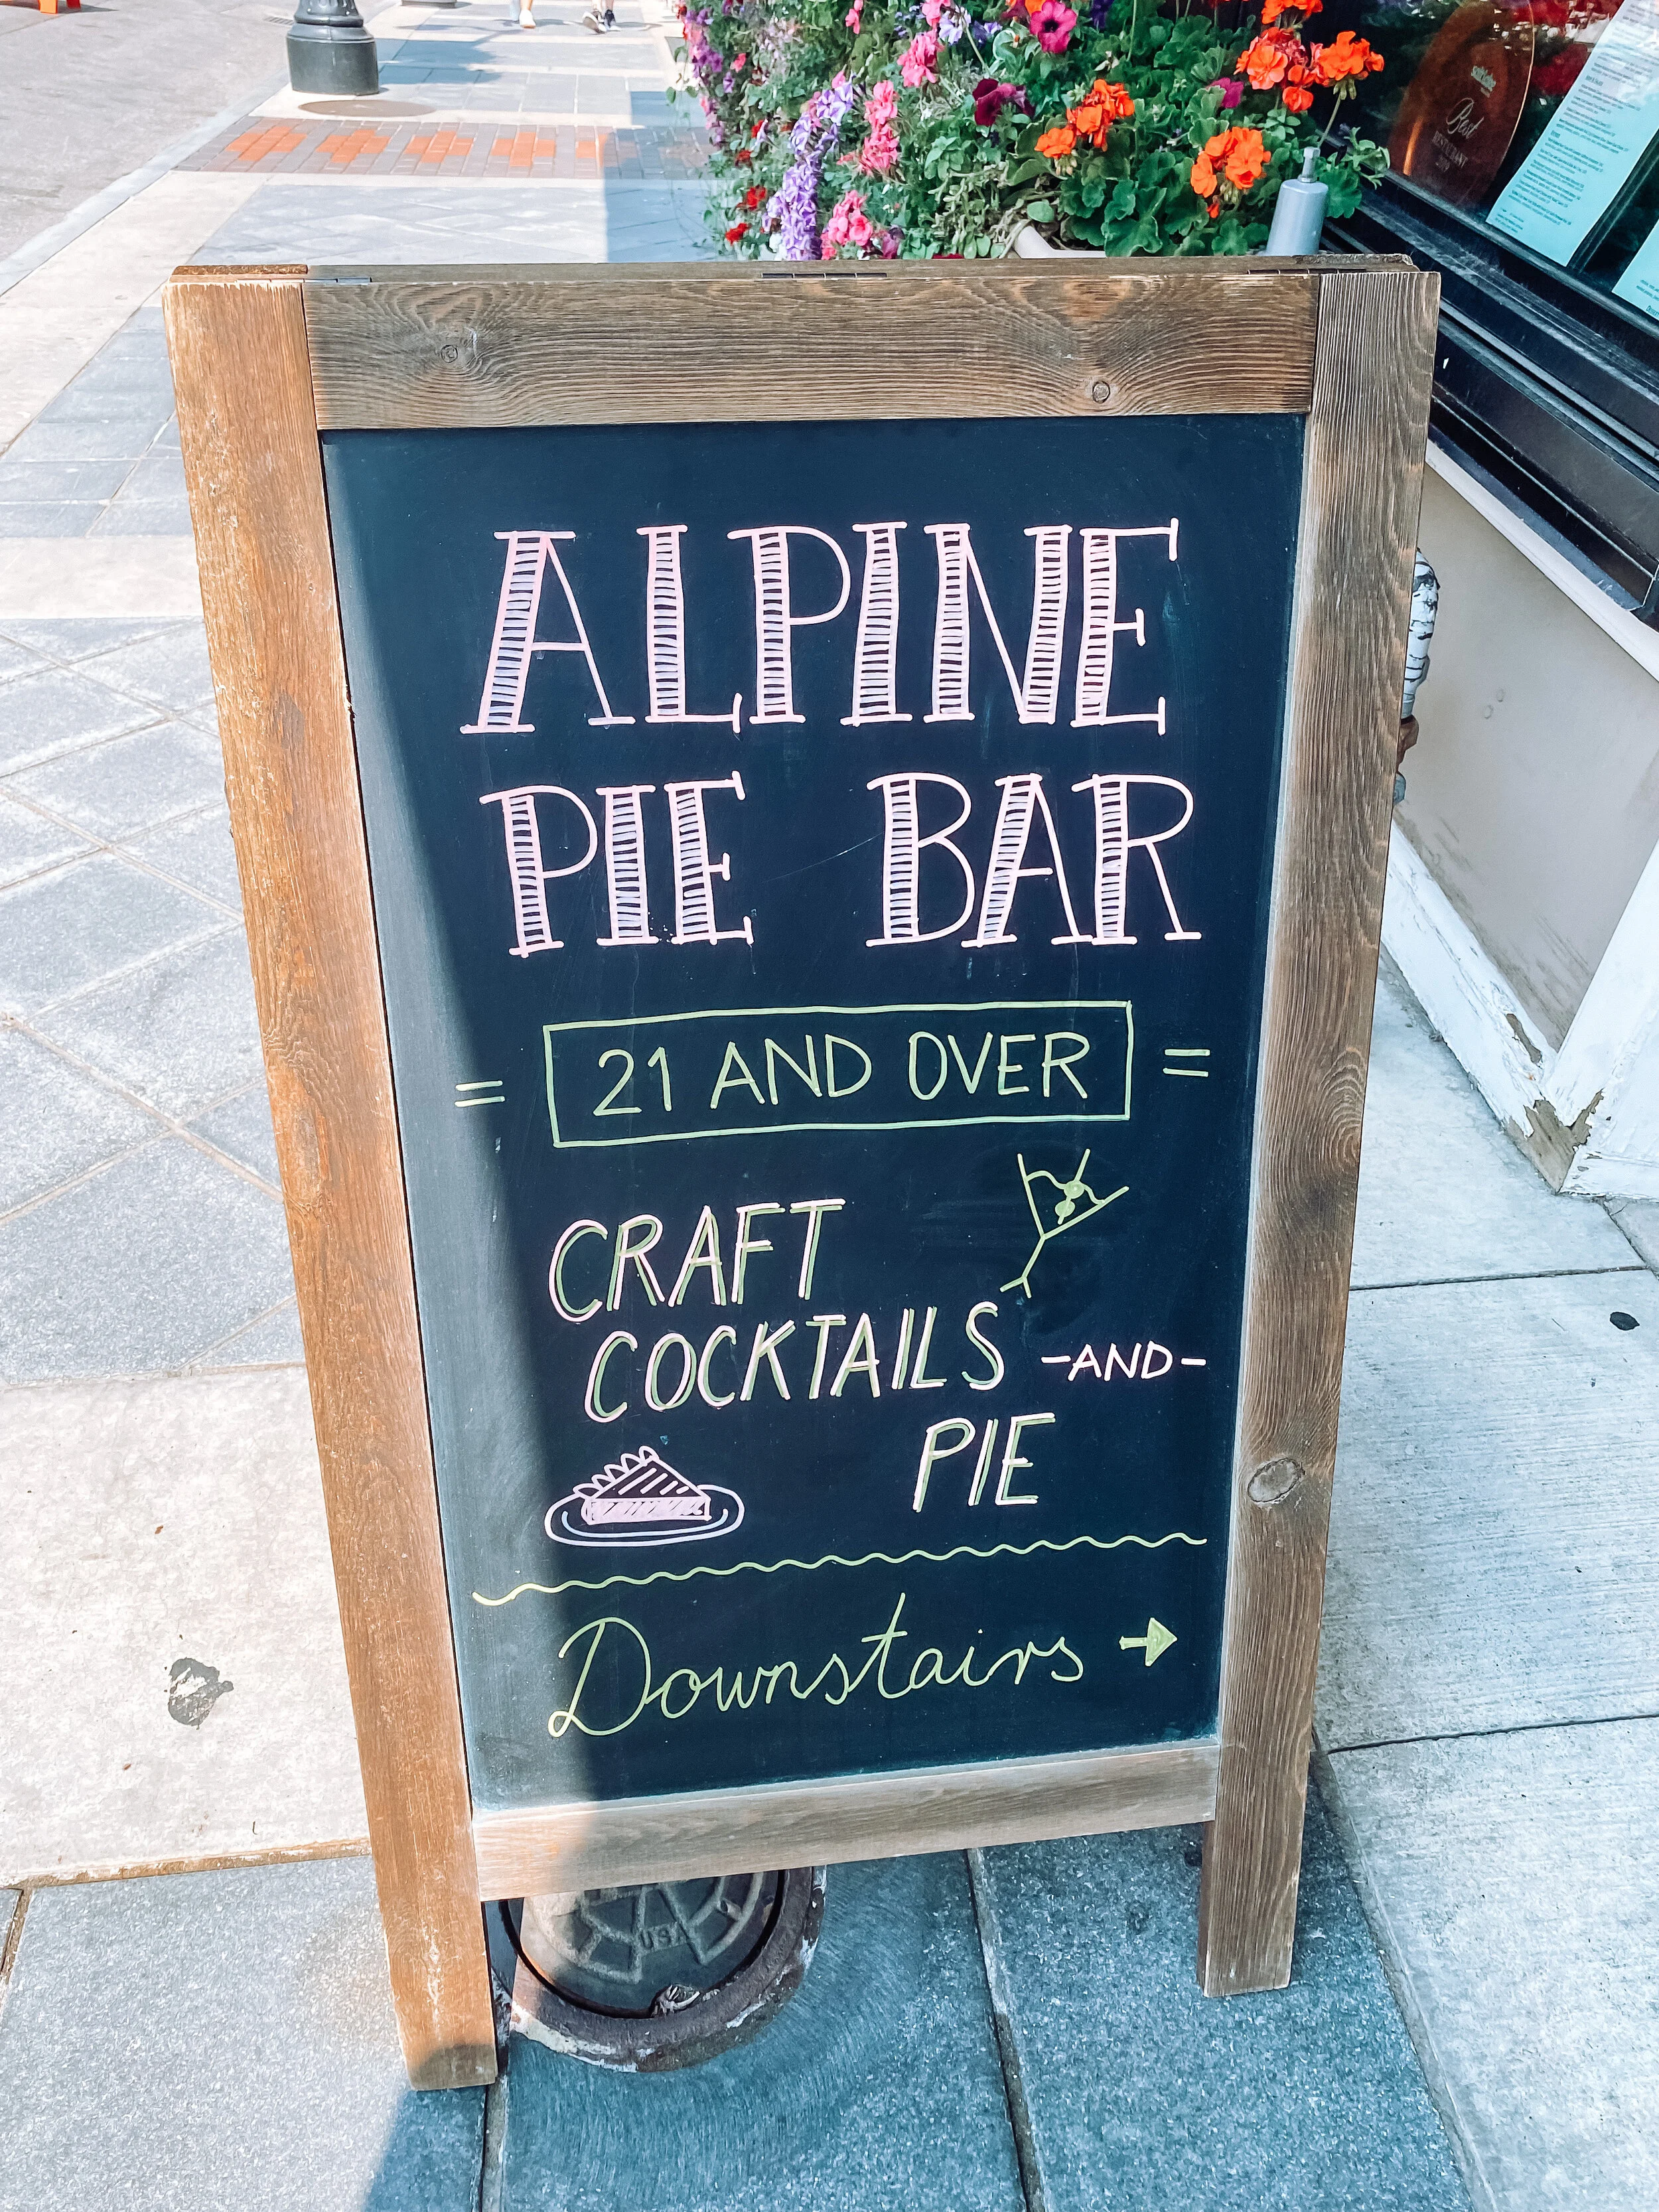 ALPINE
PIE BAR
= 21 AND OVER =
CRAFT
COCKTAILS -AND-
PIE
Downstairs →
USA
Best
RESTAURANT